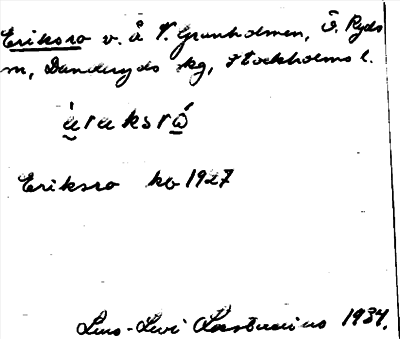 Eriksro v. å V. Granholmen, Ö. Ryds
m, Danderyds kg, Stockholms l.
Eriksro kb 1927
Lars-Levi Læstadius 1934.